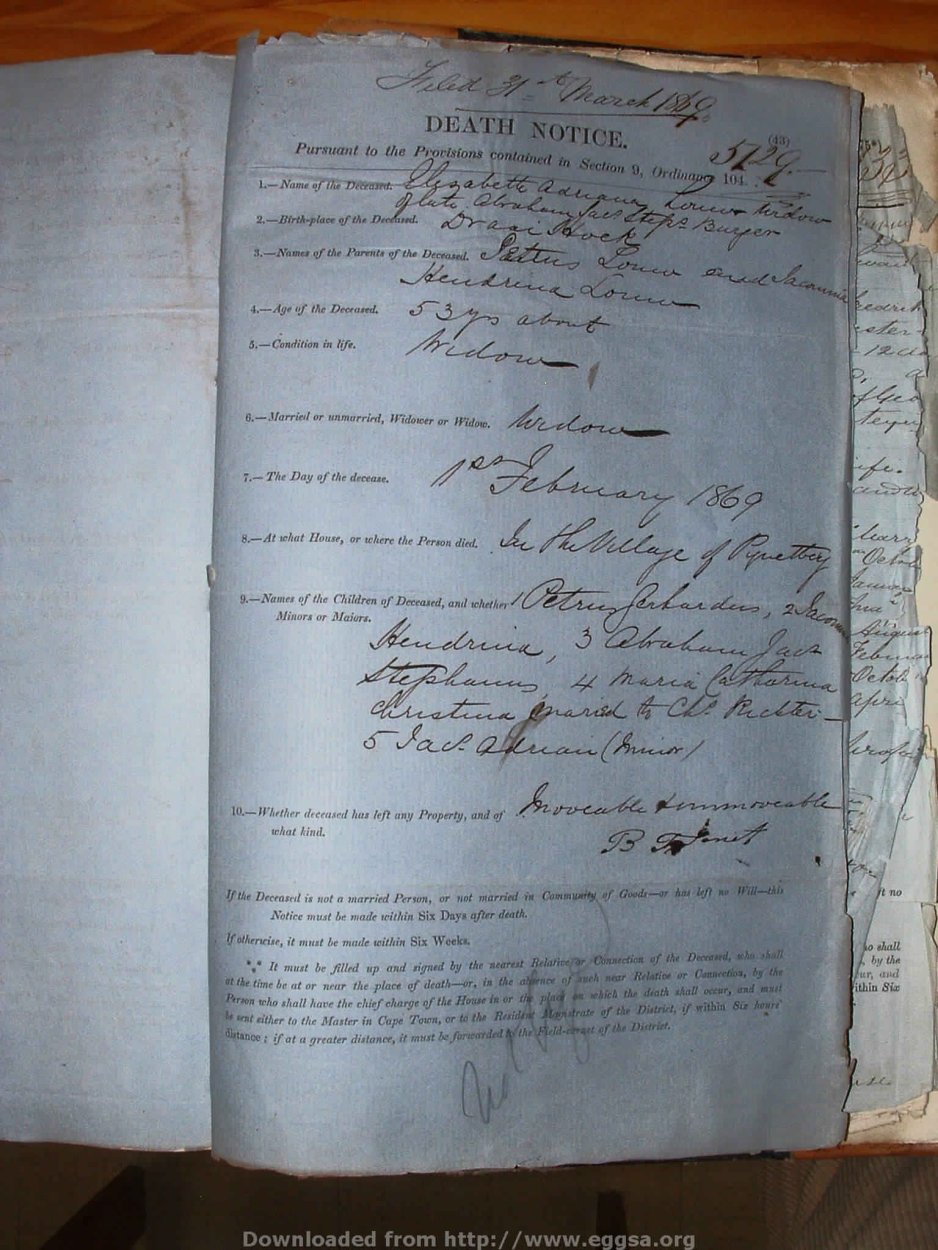 Filed 31st March 1869.
DEATH NOTICE.
(43)
Pursuant to the Provisions contained in Section 9, Ordinance 104.
5729.
1.—Name of the Deceased. Elizabeth Adriana Louw Widow
of late Abraham Jacs Stepns Burger
2.—Birth-place of the Deceased. Draai Hoek
3.—Names of the Parents of the Deceased. Petrus Louw and Jacomina
Hendrina Louw
4.—Age of the Deceased. 53 yrs about
5.—Condition in life. Widow
6.—Married or unmarried, Widower or Widow. Widow
7.—The Day of the decease. 1st February 1869
8.—At what House, or where the Person died. In the Village of Piquetberg
9.—Names of the Children of Deceased, and whether 1 Petrus Gerhardus, 2 Jacomina
Minors or Majors.
Hendrina, 3 Abraham Jacs
Stephanus, 4 Maria Catharina
Christina married to Chs Richter
5 Jacs Adrian (Minor)
10.—Whether deceased has left any Property, and of Moveable & immoveable
what kind.
If the Deceased is not a married Person, or not married in Community of Goods—or has left no Will—this
Notice must be made within Six Days after death.
If otherwise, it must be made within Six Weeks.
*** It must be filled up and signed by the nearest Relative or Connection of the Deceased, who shall
at the time be at or near the place of death—or, in the absence of such near Relative or Connection, by the
Person who shall have the chief charge of the House in or the place on which the death shall occur, and must
be sent either to the Master in Cape Town, or to the Resident Magistrate of the District, if within Six hours'
distance; if at a greater distance, it must be forwarded to the Field-cornet of the District.
Downloaded from http://www.eggsa.org